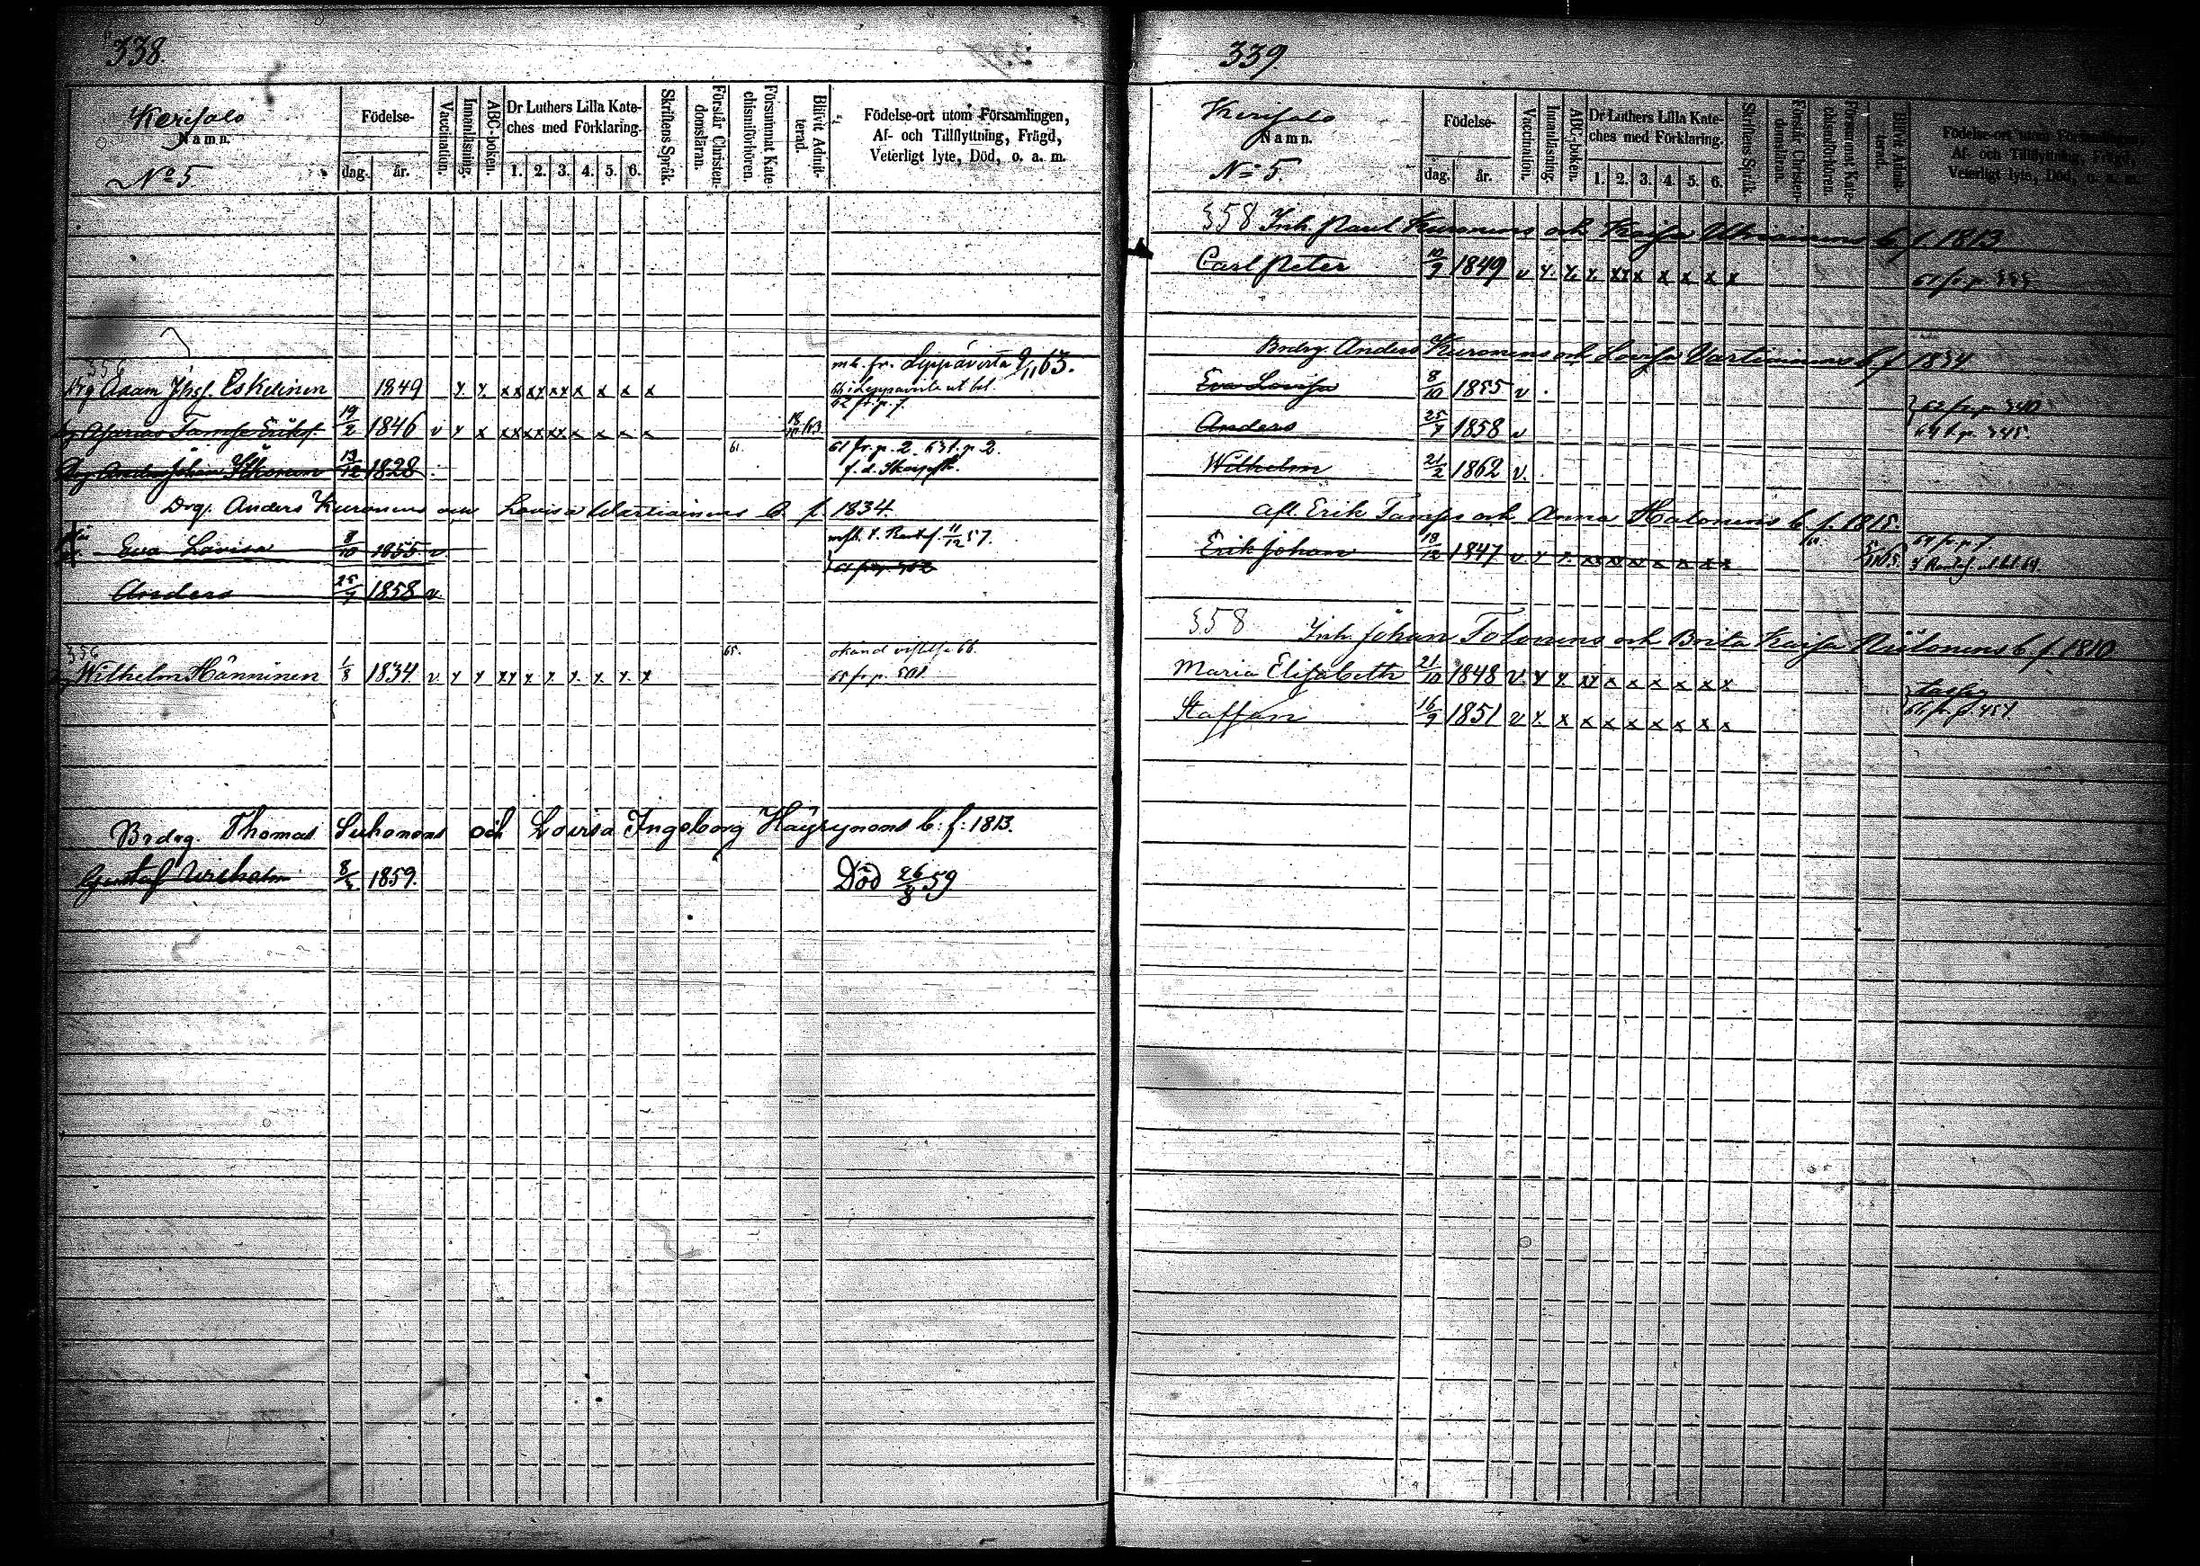 338.
Kerisalo
Namn.
No 5
Födelse-
dag.
år.
Vaccination.
Innanläsning.
ABC-boken.
Dr Luthers Lilla Kate-
ches med Förklaring.
1. 2. 3. 4. 5. 6.
Skriftens Språk.
Förstår Christen-
domsläran.
Försummat Kate-
chismiförhören.
Blifvit Admit-
terad.
Födelse-ort utom Församlingen,
Af- och Tillflyttning, Frägd,
Veterligt lyte, Död, o. a. m.
358
Adam Eskelinen 1849 x x x x x x x x x fr. Leppävirta 63.
19/2 1846 v x x x x x x x x 63
Johan 13/12 1828 61. 61 fr. p. 2. 63 t. p. 2.
Drg. Anders Kuronens och Lovisa Vartiainens b. f. 1834.
Eva Lovisa 8/10 1855 v 11/12 57.
Anders 25/7 1858 v
356
Wilhelm Hänninen 1/8 1834 v x x x x x x x x x 65. okänd vistelse 66.
65 fr. p. 501.
Brdrg. Thomas Suhonens och Lovisa Ingeborg Häyrynens b: f: 1813.
Gustaf Wilhelm 8/3 1859. Död 26/8 59
339.
Kerisalo
Namn.
No 5.
Födelse-
dag.
år.
Vaccination.
Innanläsning.
ABC-boken.
Dr Luthers Lilla Kate-
ches med Förklaring.
1. 2. 3. 4. 5. 6.
Skriftens Språk.
Förstår Christen-
domsläran.
Försummat Kate-
chismiförhören.
Blifvit Admit-
terad.
Födelse-ort utom Församlingen,
Af- och Tillflyttning, Frägd,
Veterligt lyte, Död, o. a. m.
358 Inh. Paul Kuronens och Kaisa b. f. 1813
Carl Peter 10/9 1849 v x x x x x x x x x x
Brdrg. Anders Kuronens och Lovisa Vartiainens b. f 1834
Eva Lovisa 8/10 1855 v 62 fr. p. 340
Anders 25/7 1858 v 64 t. p. 345.
Wilhelm 21/2 1862 v.
afl. Erik Tamps och Anna Halonens b. f. 1815.
Erik Johan 18/12 1847 v x x x x x x x x x
358 Inh. Johan Tolonens och Brita Kaisa Niilonens b. f. 1810
Maria Elisabeth 21/10 1848 v x x x x x x x x x
Staffan 16/9 1851 v x x x x x x x x